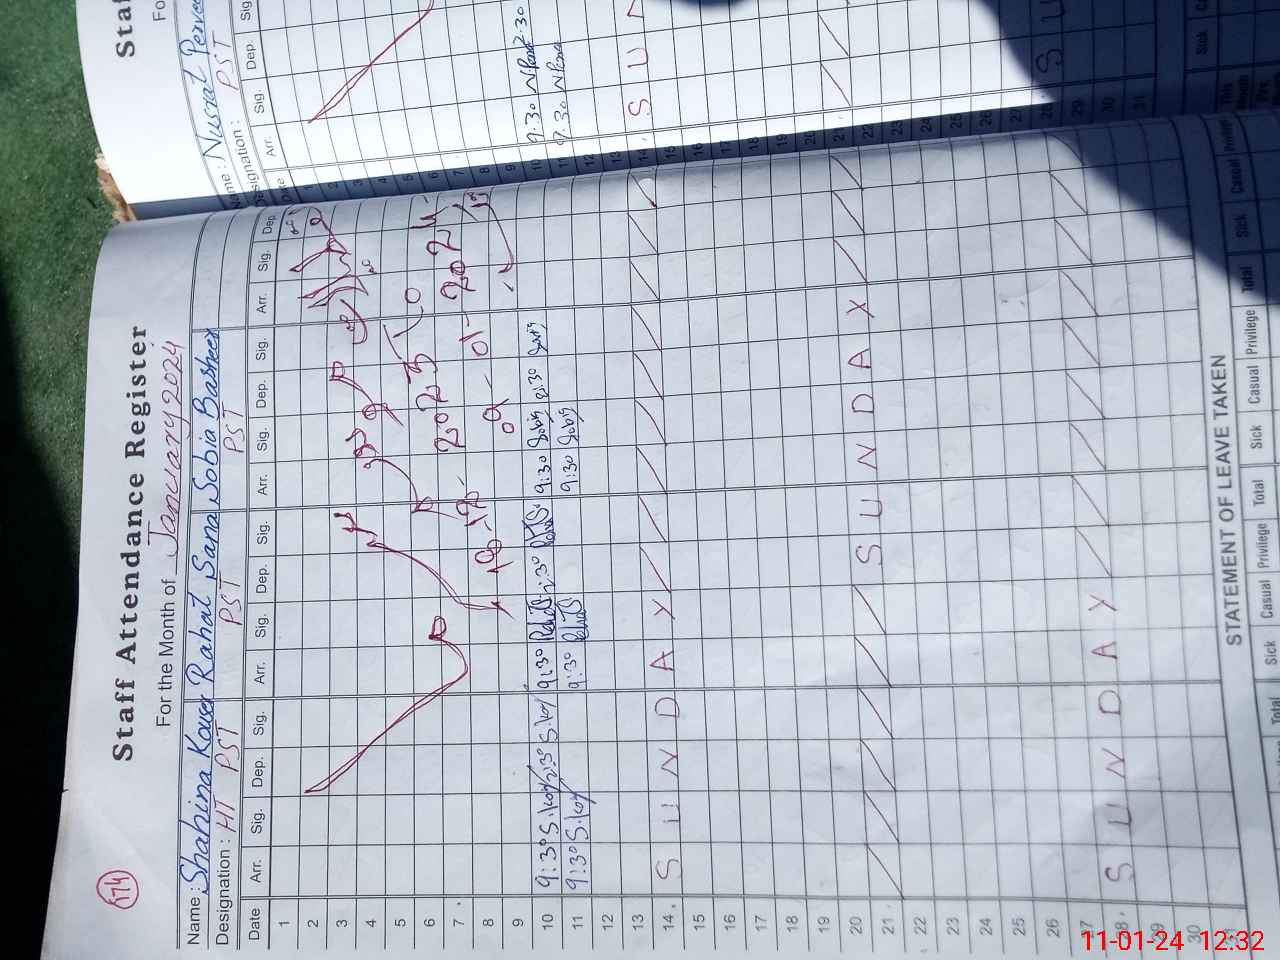 174
Staff Attendance Register
For the Month of January 2024
Name: Shahina Kouser Rahat Sana Sobia Basheer
Designation: HT PST PST PST
Date Arr. Sig. Dep. Sig. Arr. Sig. Dep. Sig. Arr. Sig. Dep. Sig. Arr. Sig. Dep.
1
2
3
4
5
6
7
8
9
10 9:30 S.koy 2:30 S.koy 9:30 2:30 9:30 Sobia 2:30
11 9:30 S.koy 9:30 9:30 Sobia
12
13
14 SUNDAY
15
16
17
18
19
20
21 SUNDAY
22
23
24
25
26
27
28 SUNDAY
29
30
31
19-12-2023 09-01-2024
STATEMENT OF LEAVE TAKEN
Total Sick Casual Privilege Total Sick Casual Privilege Total Sick Casual
Staf
Fo
Name: Nusrat Pervee
Designation: PST
Date Arr. Sig. Dep. Sig
1
2
3
4
5
6
7
8
9
10 9.30 2.30
11 9.30
12
13
14 SU
15
16
17
18
19
20
21
22
23
24
25
26
27
28 SU
29
30
31
11-01-24 12:32